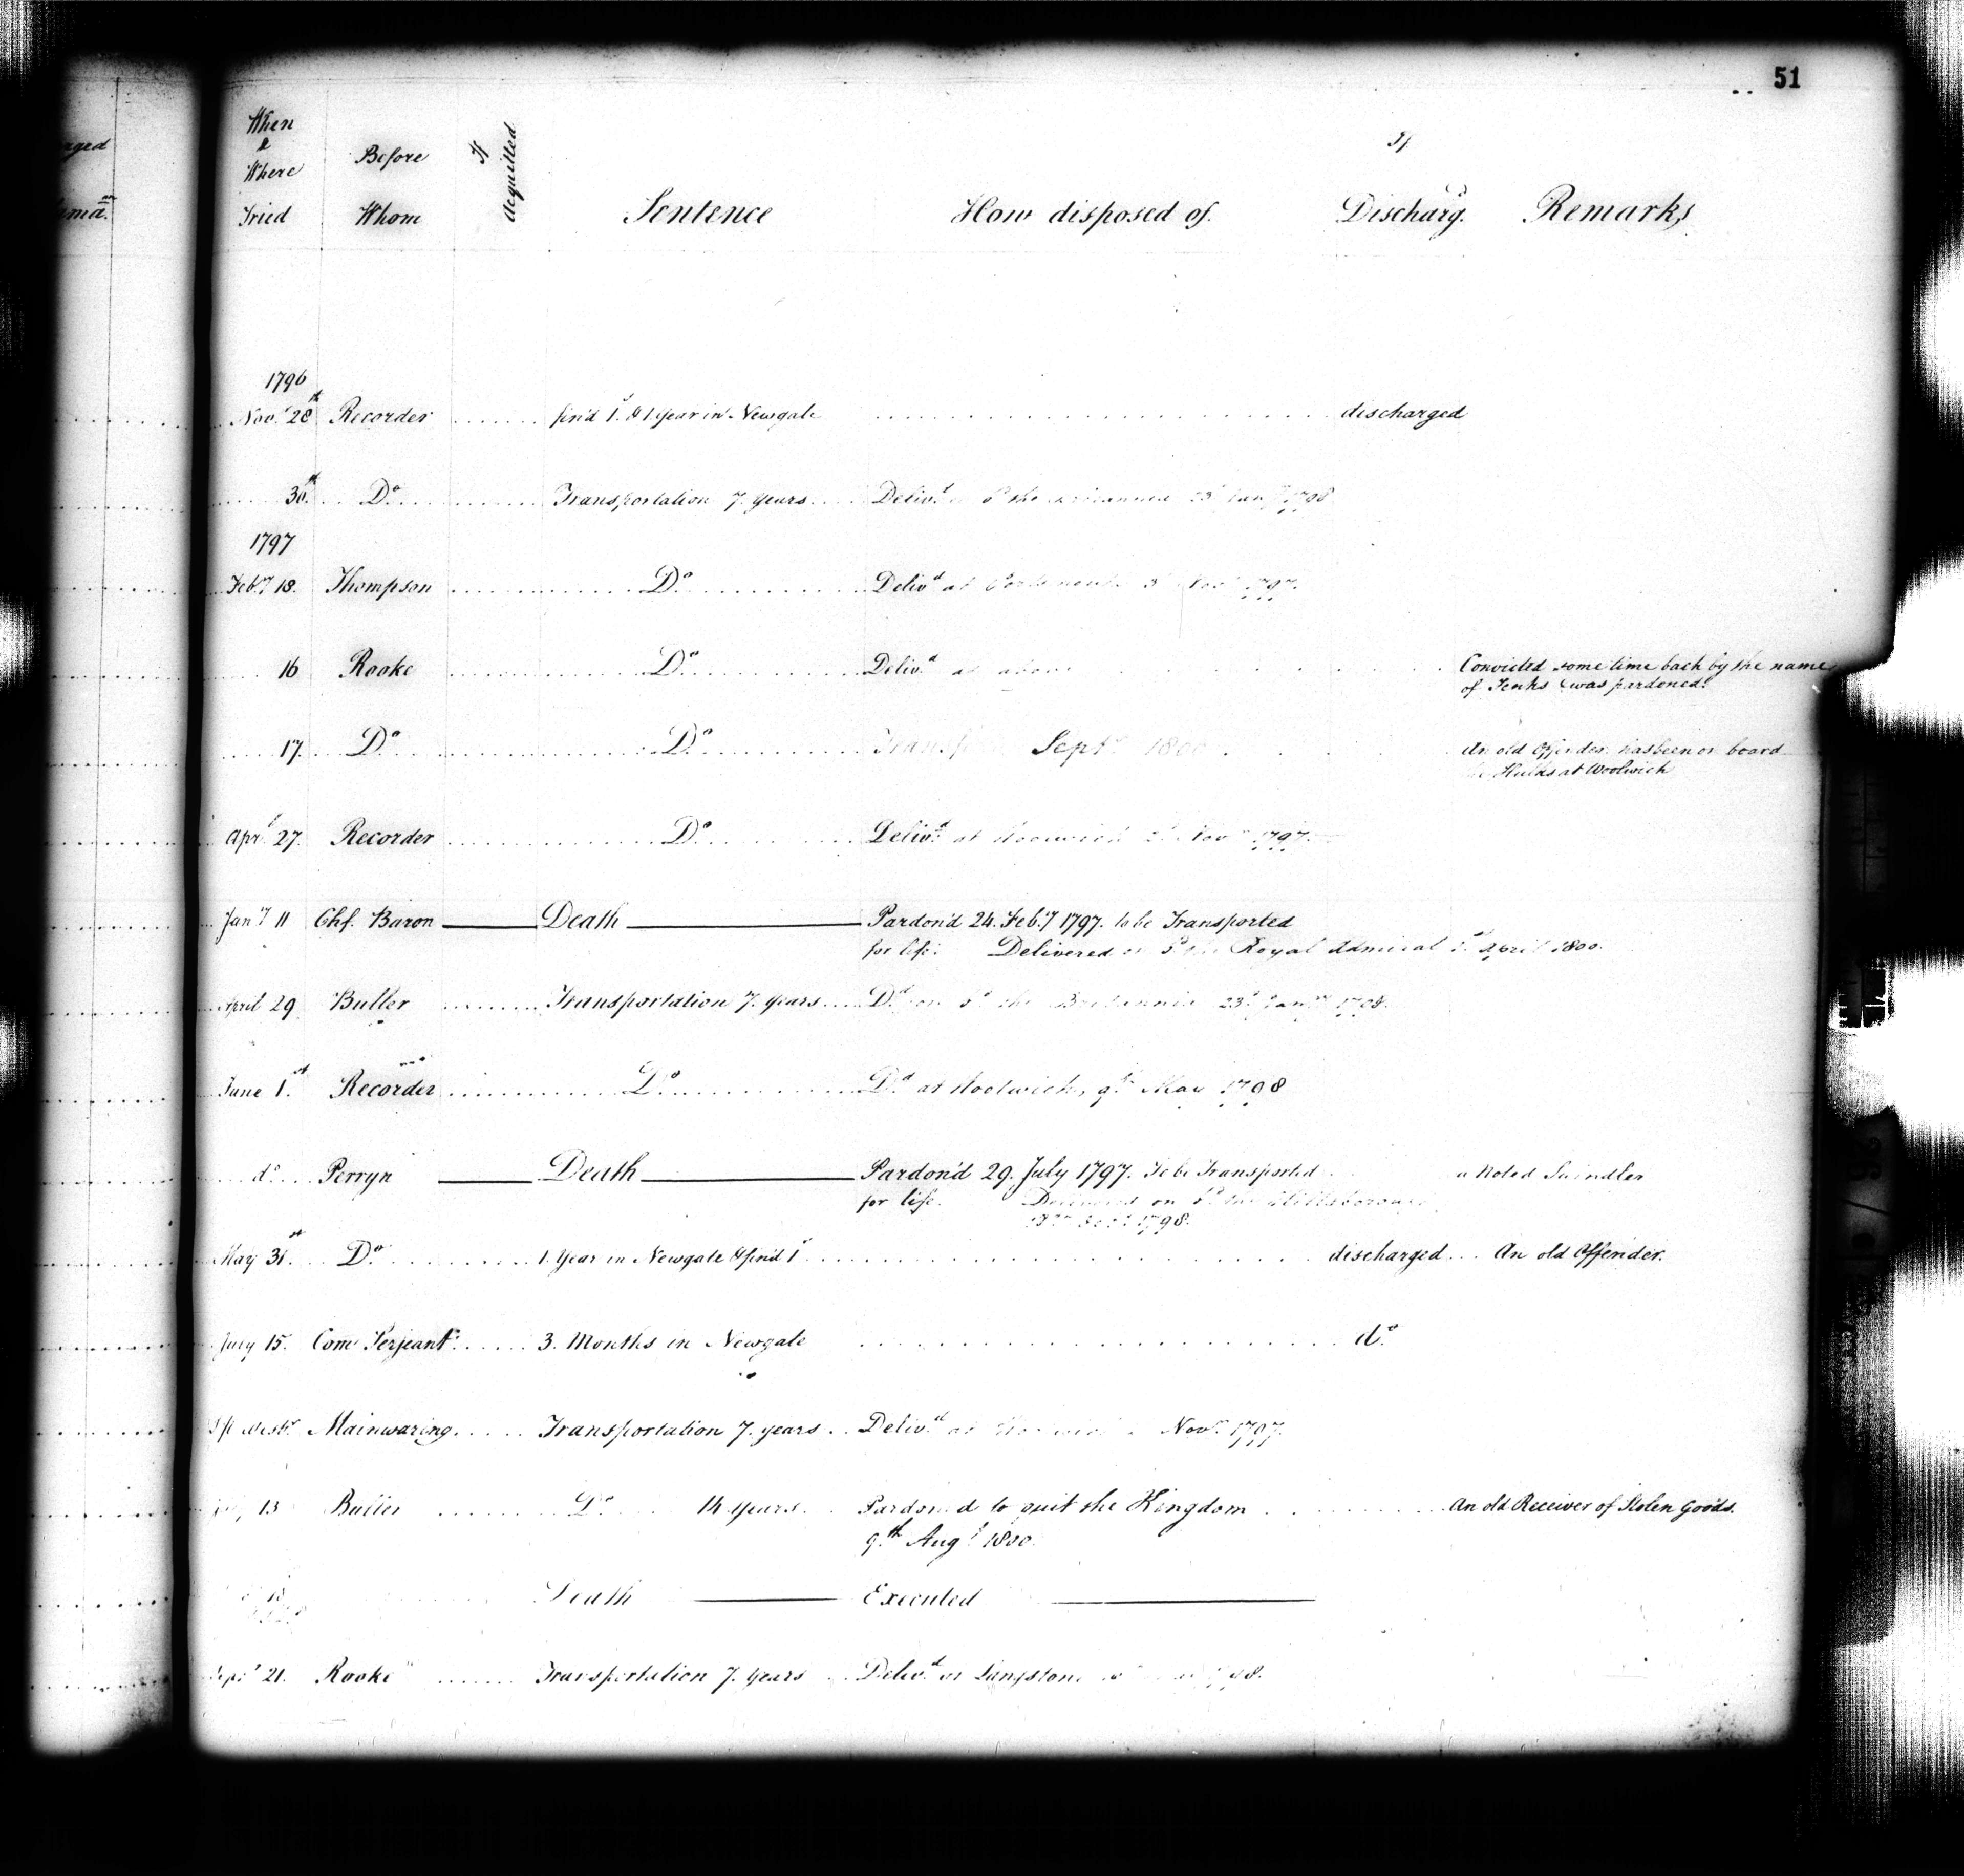 51
When & Where Tried
Before Whom
If Acquitted
Sentence
How disposed of
If Discharg'd
Remarks
1796
Nov.r 28th Recorder fin'd 1s. & 1 year in Newgate discharged
30th Do Transportation 7 years Deliv.d the Britannia 23d Jany 1798
1797
Feb.y 18. Thompson Do Deliv.d at Portsmouth 3d Nov.r 1797.
16 Rooke Do Deliv.d as above Convicted some time back by the name
of Jenks & was pardoned.
17. Do Do Transp Sept.r 1800 An old Offender has been on board
the Hulks at Woolwich
Apr.l 27. Recorder Do Deliv.d at Woolwich Nov.r 1797.
Jan.y 11 Chf. Baron Death Pardon'd 24. Feb.y 1797. to be Transported
for life. Delivered on bd the Royal Admiral April 1800.
April 29 Buller Transportation 7. years Dd on bd the Britannia 23d Jany 1798.
June 1.st Recorder Do Dd at Woolwich, 9th May 1798
do Perryn Death Pardon'd 29. July 1797. To be Transported a Noted Swindler
for life. Delivered on bd the Hillsborough
1798.
May 31.st Do 1. Year in Newgate & fin'd 1s discharged An old Offender.
July 15. Com Serjeant 3. Months in Newgate do
Mainwaring Transportation 7. years Deliv.d at Woolwich Nov.r 1797.
13 Buller Do 14 years Pardon'd to quit the Kingdom An old Receiver of Stolen Goods.
9th Aug.t 1800.
Death Executed
Sept.r 21. Rooke Transportation 7. years Deliv.d at Langstone